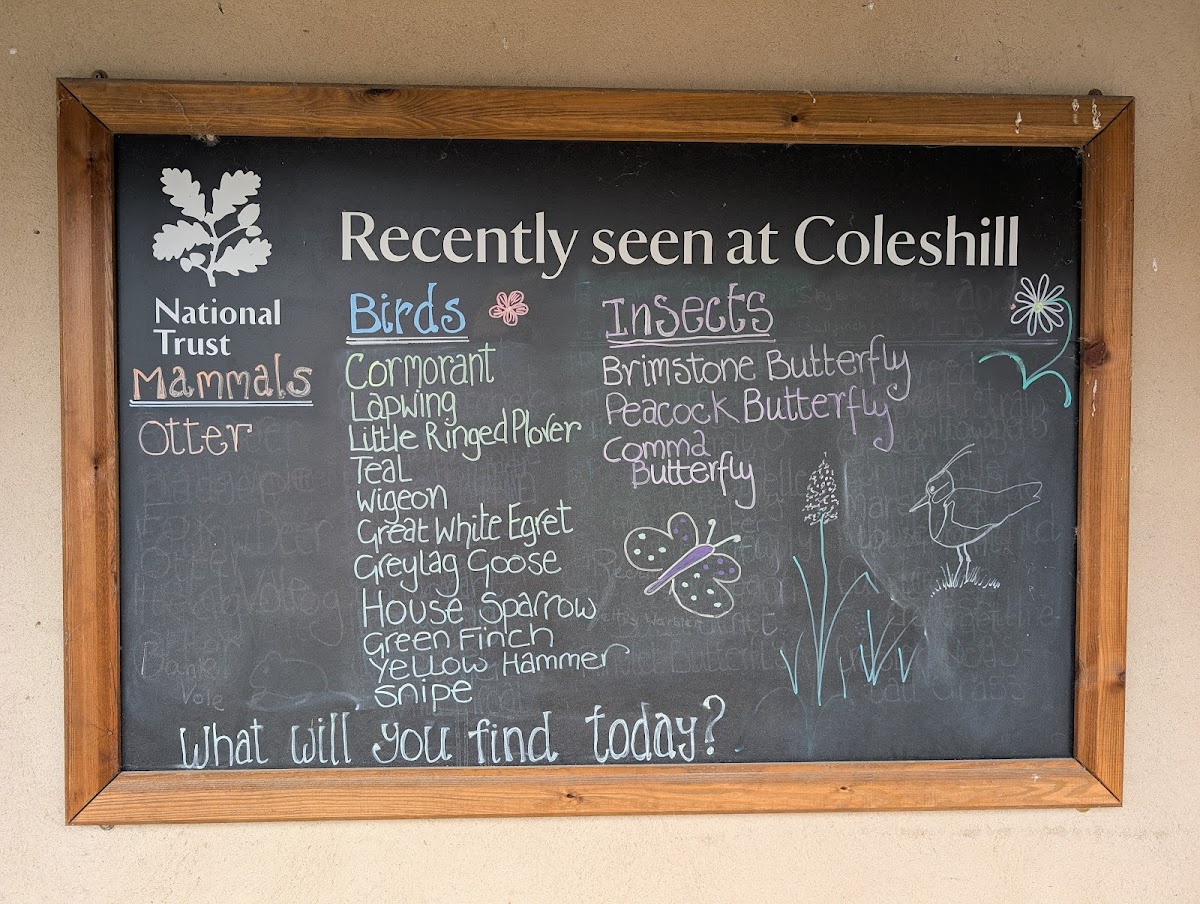 National
Trust
Recently seen at Coleshill
Mammals
Otter
Birds
Cormorant
Lapwing
Little Ringed Plover
Teal
Wigeon
Great White Egret
Greylag Goose
House Sparrow
Green Finch
Yellow Hammer
Snipe
Insects
Brimstone Butterfly
Peacock Butterfly
Comma
Butterfly
Bank
Vole
What will you find today?